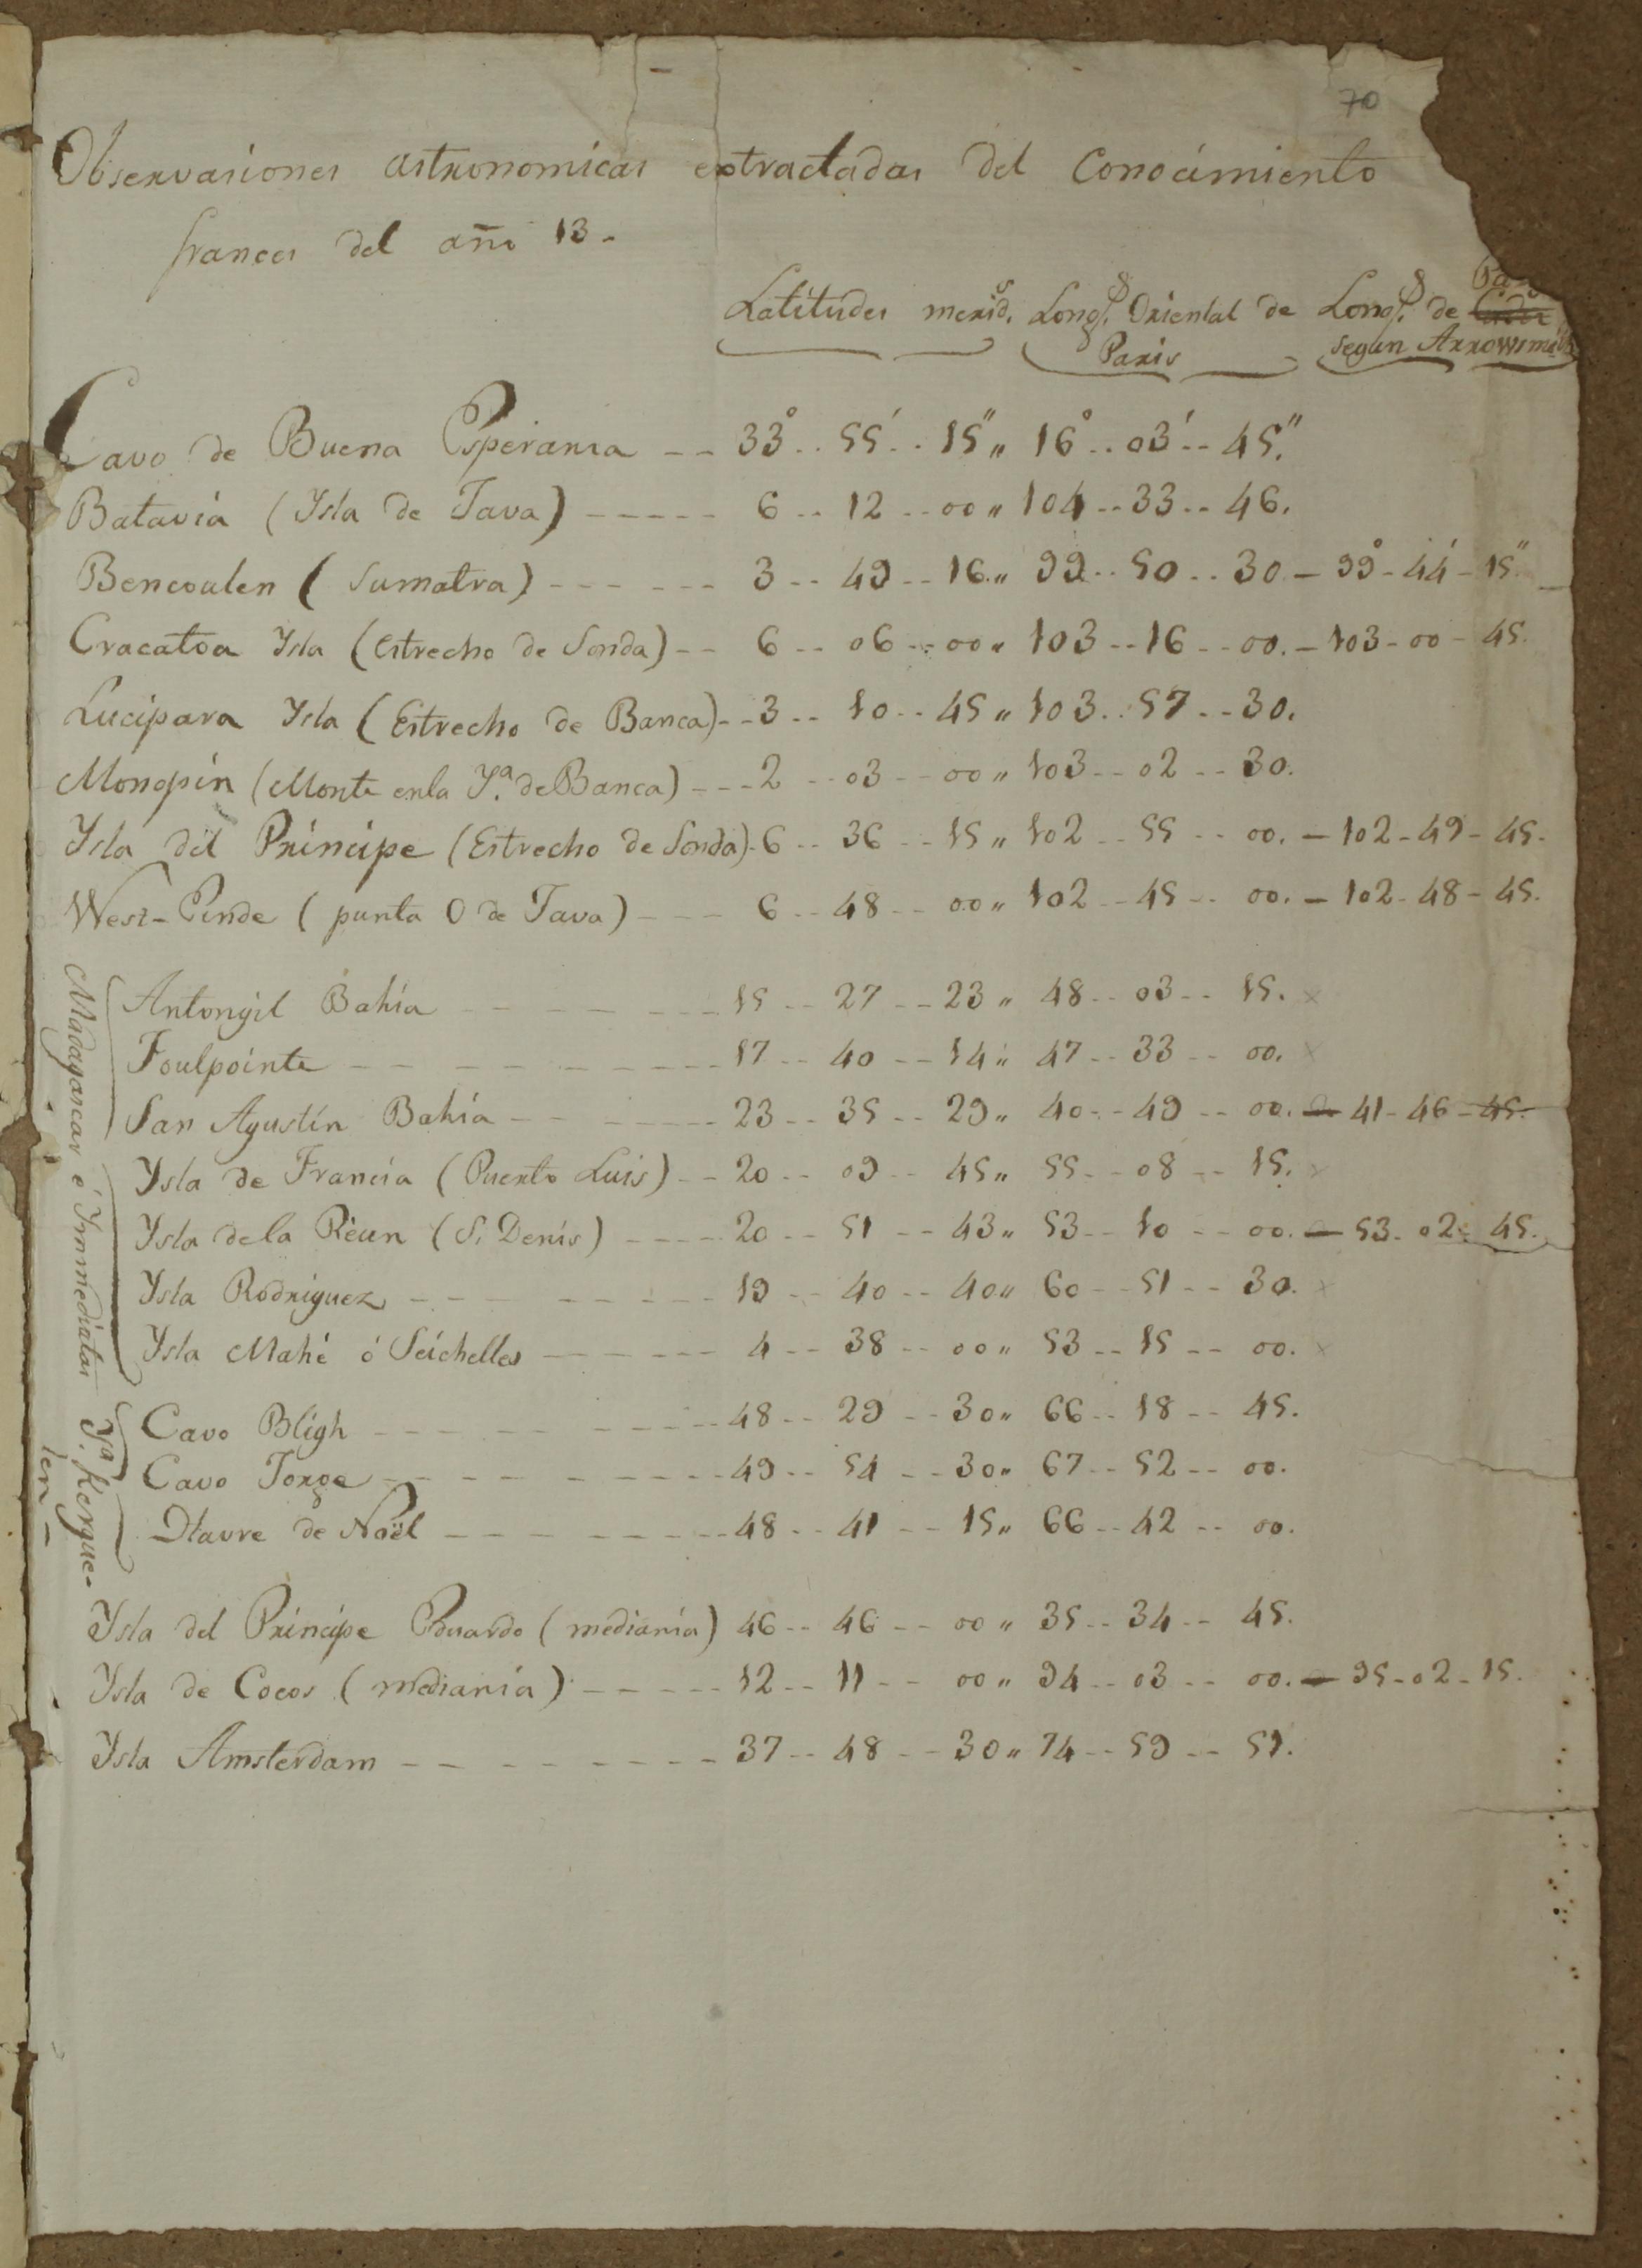 70
Observaciones astronomicas extractadas del Conocimiento
frances del año 13.
Latitudes merids. Longs. Oriental de Paris Longs. de Cadiz segun Arrowsmith
Cavo de Buena Esperanza -- 33° .. 55' .. 15" „ 16° .. 03' .. 45".
Batavia (Ysla de Java) ----- 6 .. 12 .. 00 „ 104 .. 33 .. 46.
Bencoulen (Sumatra) ------ 3 .. 49 .. 16 „ 99 .. 50 .. 30 — 99° - 44' - 15"
Cracatoa Ysla (Estrecho de Sonda) -- 6 .. 06 .. 00 „ 103 .. 16 .. 00. — 103 - 00 - 45.
Lucipara Ysla (Estrecho de Banca) -- 3 .. 10 .. 45 „ 103 .. 57 .. 30.
Monopin (Monte en la Ya. de Banca) --- 2 .. 03 .. 00 „ 103 .. 02 .. 30.
Ysla del Principe (Estrecho de Sonda) - 6 .. 36 .. 15 „ 102 .. 55 .. 00. — 102 - 49 - 45.
West-Pinde (punta O de Java) ---- 6 .. 48 .. 00 „ 102 .. 45 .. 00. — 102 - 48 - 45.
Madagascar é Ynmediatas
Antongil Bahía ------- 15 .. 27 .. 23 „ 48 .. 03 .. 15. x
Foulpointe -------- 17 .. 40 .. 14 „ 47 .. 33 .. 00. x
San Agustín Bahía ------ 23 .. 35 .. 29 „ 40 .. 49 .. 00. — 41 - 46 - 45.
Ysla de Francia (Puerto Luis) -- 20 .. 09 .. 45 „ 55 .. 08 .. 15. x
Ysla de la Réun (S. Denis) ---- 20 .. 51 .. 43 „ 53 .. 10 .. 00. — 53 - 02 - 45.
Ysla Rodriguez ------- 19 .. 40 .. 40 „ 60 .. 51 .. 30. x
Ysla Mahé ó Seichelles ------ 4 .. 38 .. 00 „ 53 .. 15 .. 00. x
Ya. Kergue-
len -
Cavo Bligh -------- 48 .. 29 .. 30 „ 66 .. 18 .. 45.
Cavo Jorge -------- 49 .. 54 .. 30 „ 67 .. 52 .. 00.
Havre de Noël ------- 48 .. 41 .. 15 „ 66 .. 42 .. 00.
Ysla del Principe Eduardo (medianía) 46 .. 46 .. 00 „ 35 .. 34 .. 45.
Ysla de Cocos (medianía) ----- 12 .. 11 .. 00 „ 94 .. 03 .. 00. — 95 - 02 - 15.
Ysla Amsterdam -------- 37 .. 48 .. 30 „ 74 .. 59 .. 51.